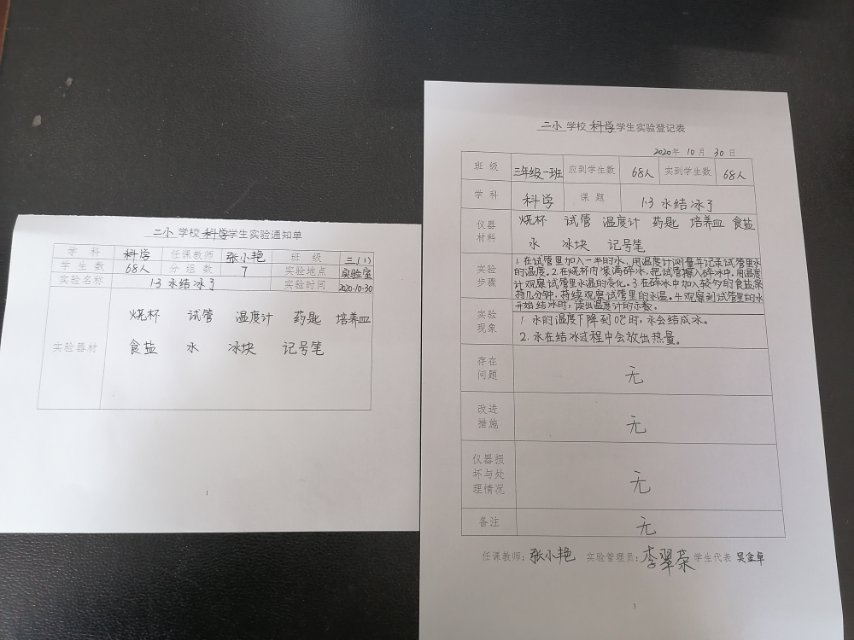 二小 学校 科学 学生实验通知单
学科 科学 任课教师 张小艳 班级 三(1)
学生数 68人 分组数 7 实验地点 实验室
实验名称 1·3 水结冰了 实验时间 2020·10·30
实验器材
烧杯 试管 温度计 药匙 培养皿
食盐 水 冰块 记号笔
1
二小 学校 科学 学生实验登记表
2020年 10月 30日
班级 三年级一班 应到学生数 68人 实到学生数 68人
学科 科学 课题 1·3 水结冰了
仪器材料
烧杯 试管 温度计 药匙 培养皿 食盐
水 冰块 记号笔
实验步骤
1.在试管里加入一半的水，用温度计测量并记录试管里水
的温度。2.在烧杯内装满碎冰，把试管插入碎冰中，用温度
计观察试管里水温的变化。3.在碎冰中加入较多的食盐，保
持几分钟，持续观察试管里的水温。4.观察到试管里的水
开始结冰时，读出温度计的示数。
实验现象
1. 水的温度下降到0℃时，水会结成冰。
2. 水在结冰过程中会放出热量。
存在问题 无
改进措施 无
仪器损坏与处理情况 无
备注 无
任课教师：张小艳 实验管理员：李翠荣 学生代表 吴金卓
1